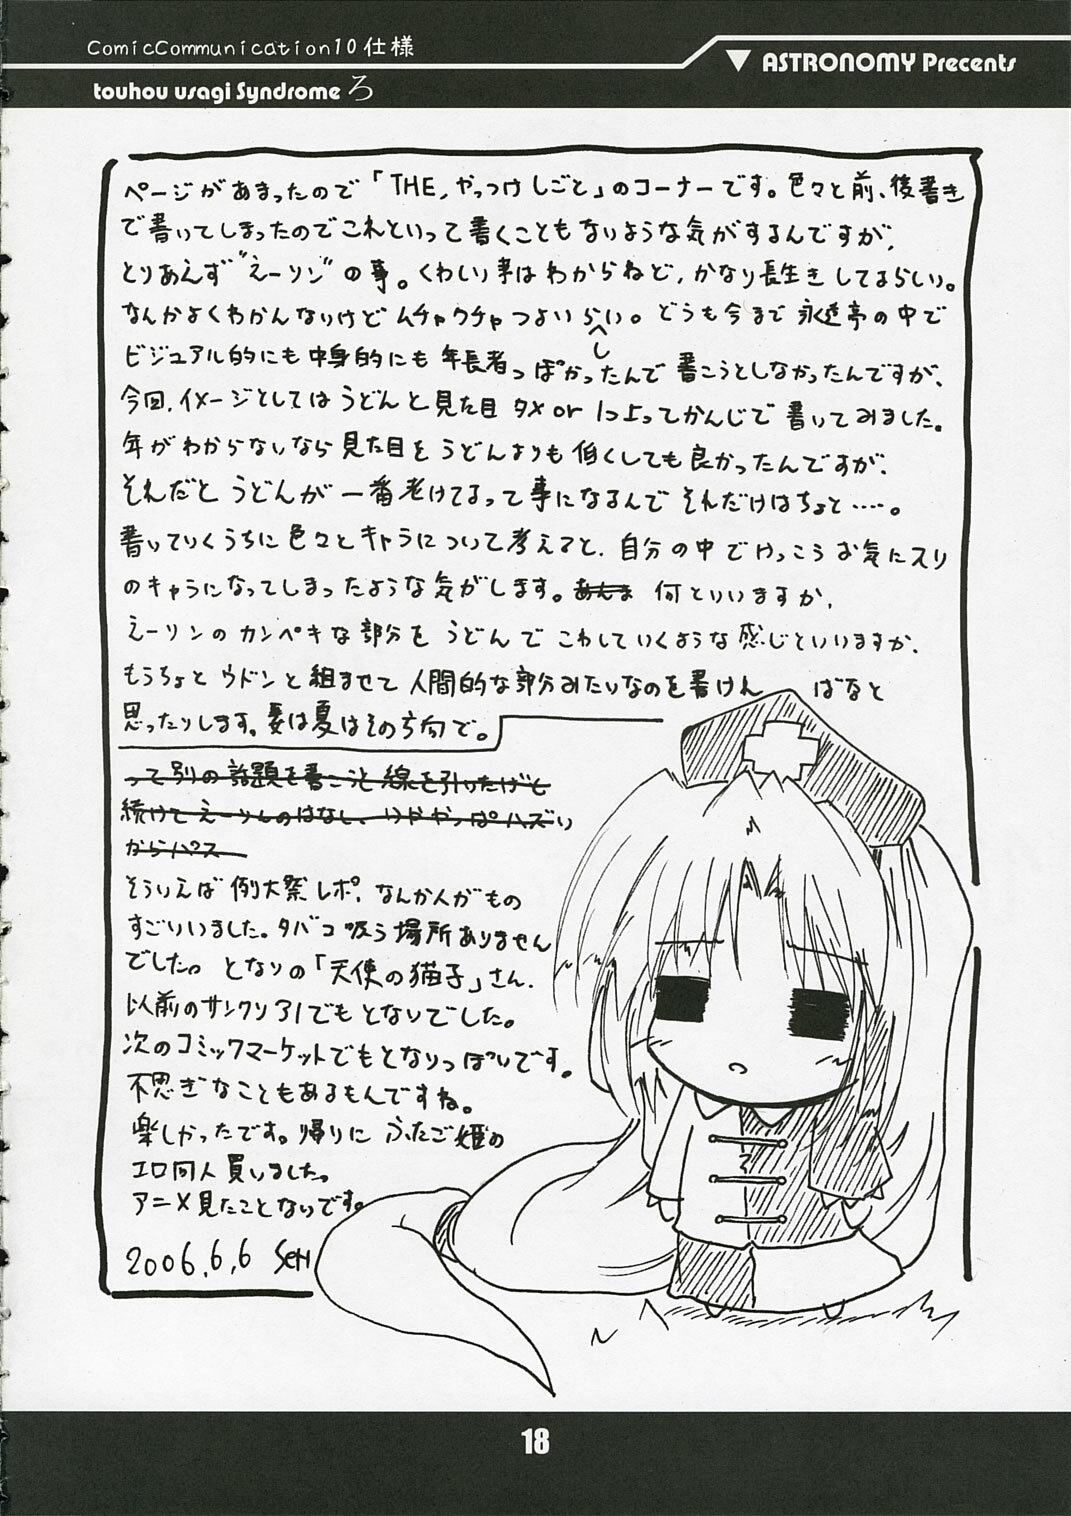 ComicCommunication10仕様
▼ ASTRONOMY Precents
touhou usagi Syndrome ろ
ページがあまったので「THE,やっつけしごと」のコーナーです。色々と前、後書き
で書いてしまったのでこれといって書くこともないような気がするんですが、
とりあえず"えーリン"の事。くわしい事はわからねど、かなり長生きしてるらしい。
なんかよくわかんないけどムチャクチャつよいらしい。どうも今まで永遠亭の中で
ビジュアル的にも中身的にも年長者っぽかったんで書こうとしなかったんですが、
今回、イメージとしてはうどんと見た目タメor1つ上ってかんじで書いてみました。
年がわからないなら見た目をうどんよりも低くしても良かったんですが、
それだとうどんが一番老けてるって事になるんでそれだけはちょと……。
書いていくうちに色々とキャラについて考えてと、自分の中でけっこうお気にスリ
のキャラになってしまったような気がします。何といいますか、
えーリンのカンペキな部分をうどんでこわしていくような感じといいますか、
もうちょとウドンと組ませて人間的な部分みたいなのを書けん ばなと
思ったりします。夏は夏はその方向で。
って別の話題を書こうと線を引いたけど
続けてえーりんのはなし、
からパス
そういえば例大祭レポ、なんか人がもの
すごいいました。タバコ吸う場所ありません
でした。となりの「天使の猫子」さん、
以前のサンクリ31でもとなりでした。
次のコミックマーケットでもとなりっぽいです。
不思ぎなこともあるもんですね。
楽しかったです。帰りにふたご姫の
エロ同人買いました。
アニメ見たことないです。
2006.6.6 SEN
18